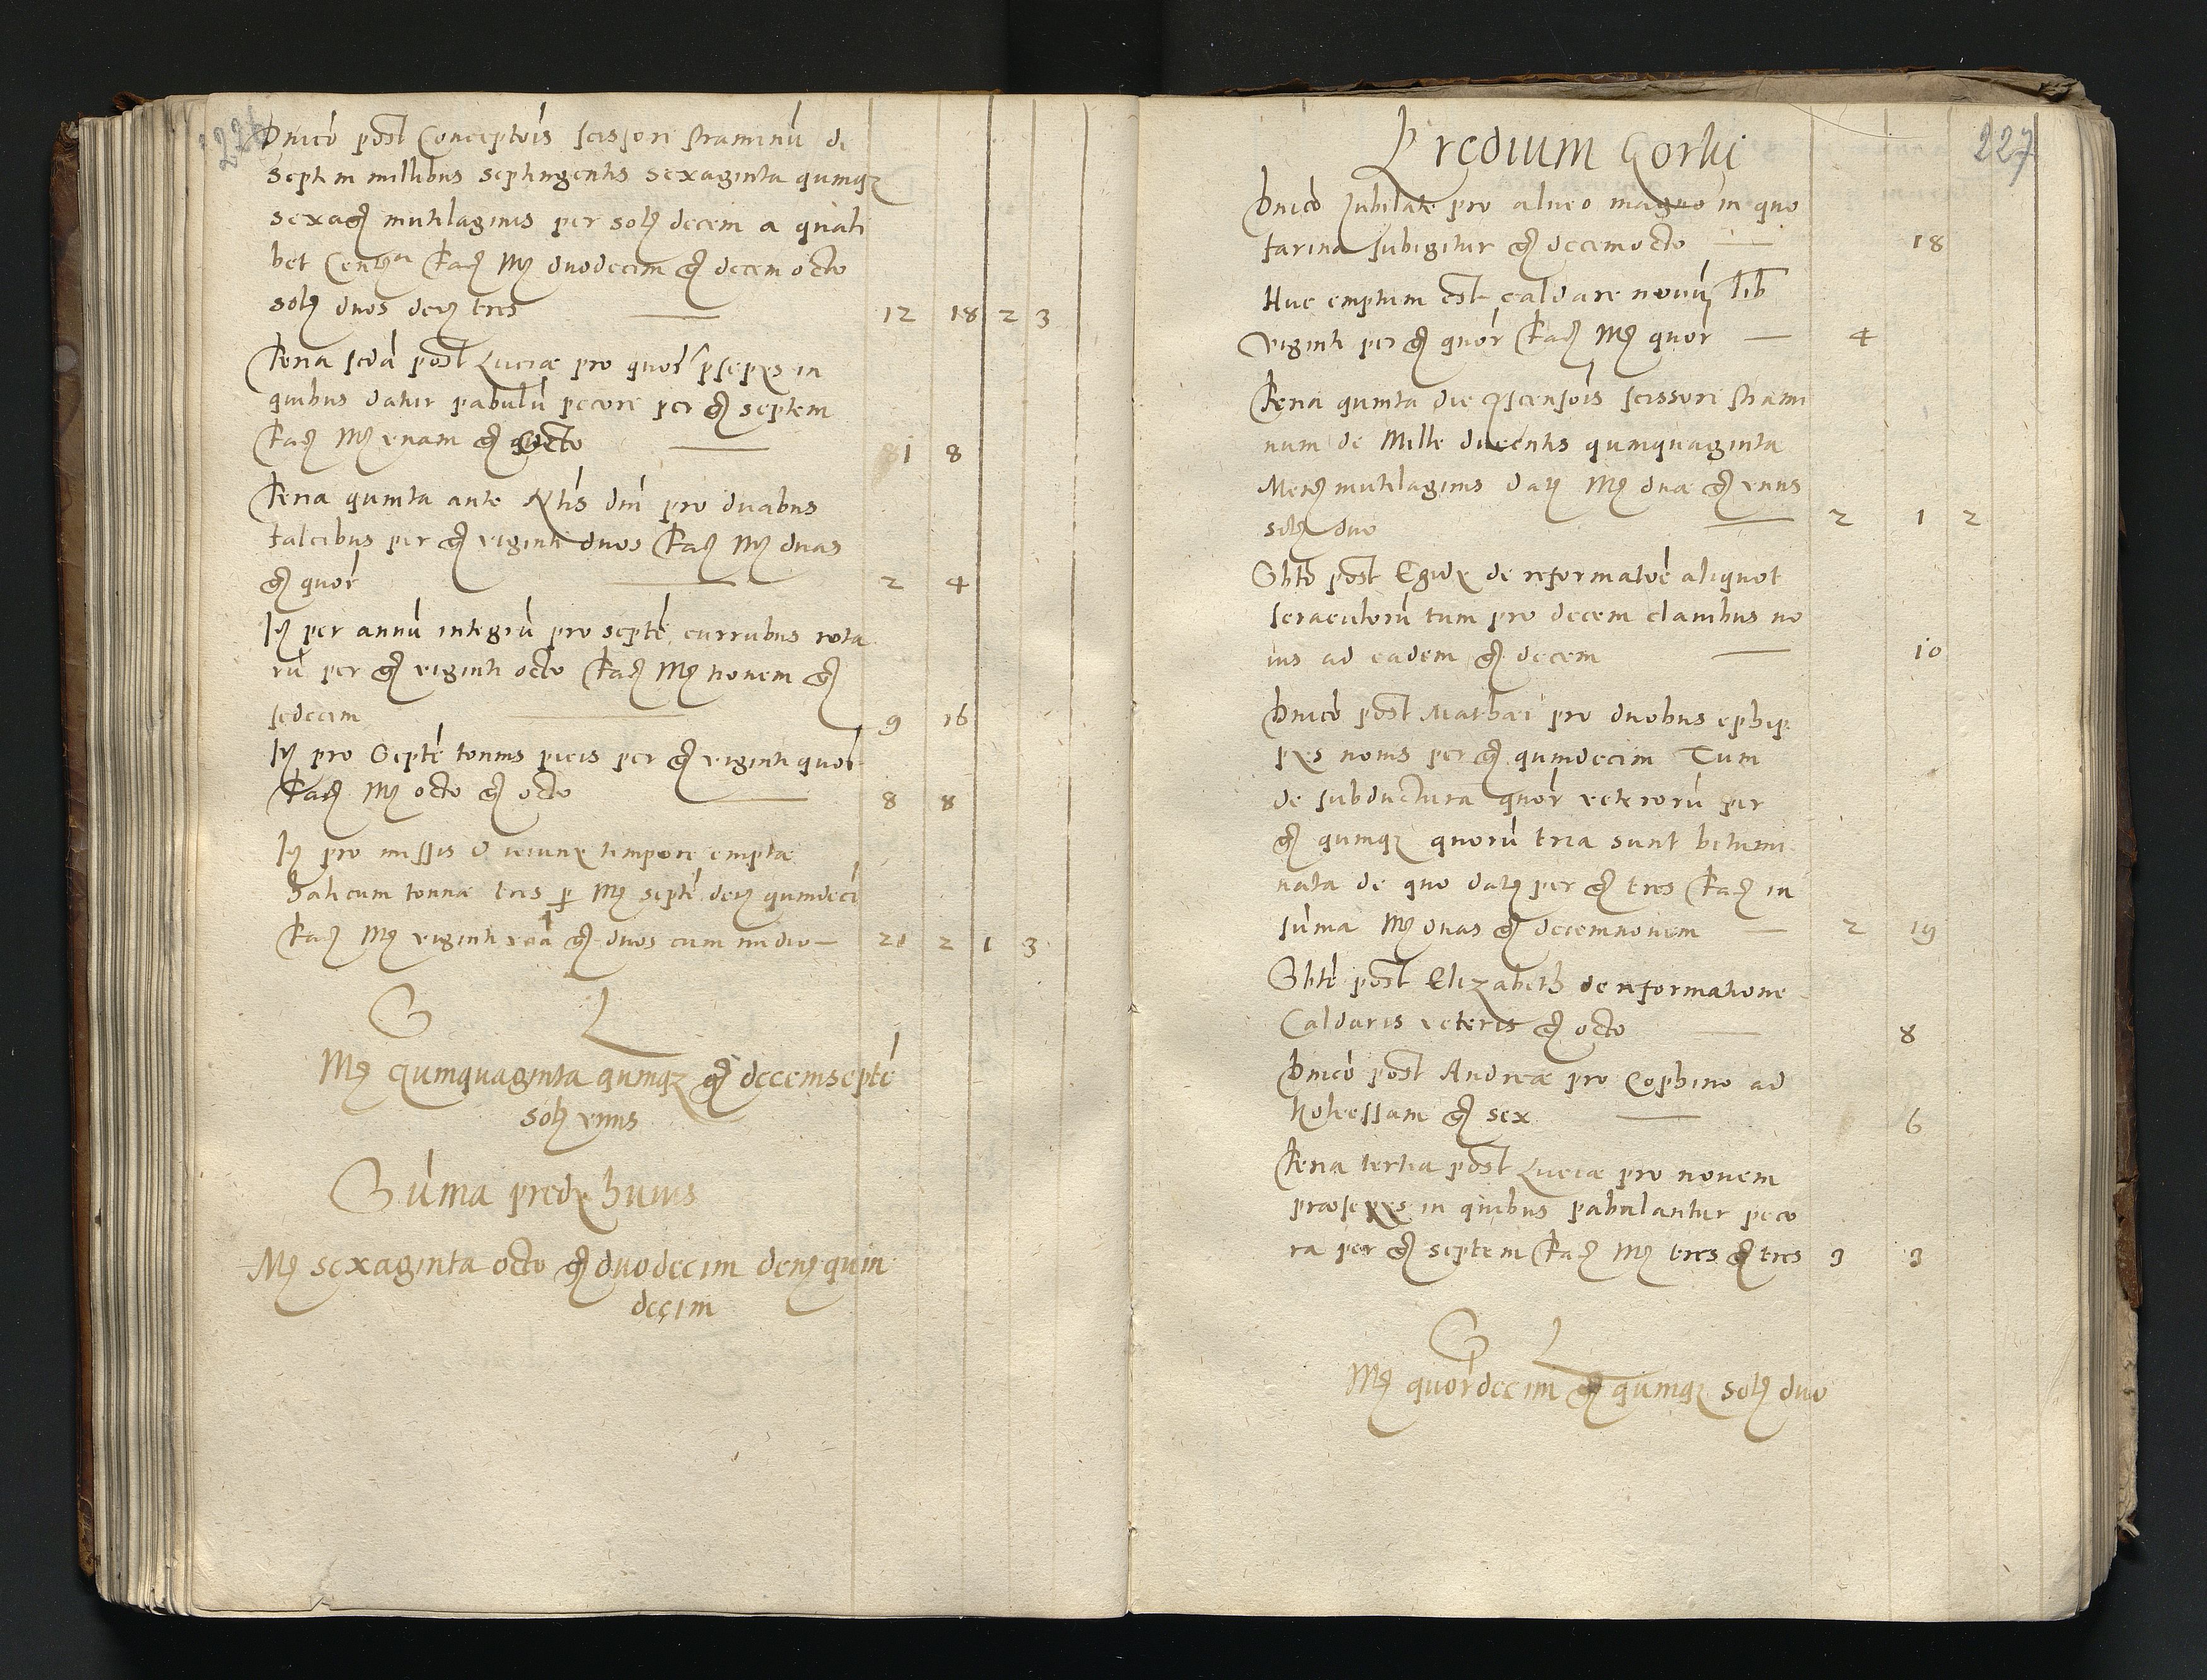 226
Dnico post Conceptois scissori straminu de
septem millibus septingentis sexaginta quinqz
sexag mutilaginis per sol decem a quali
bet Cent Fac Mc duodecim gr decem octo
sol duos den tres — 12 18 2 3
Feria scda post Luciæ pro quor psepys in
quibus datur pabulu pecore per gr septem
Fac Mc unam gr octo — 1 8
Feria quinta ante Ntis dni pro duabus
falcibus per gr viginti duos Fac Mc duas
gr quor — 2 4
It per annu integru pro septe currubus rota
ru per gr viginti octo Fac Mc novem gr
sedecim — 9 16
It pro Septe tonnis picis per gr viginti quor
Fac Mc octo gr octo — 8 8
It pro messis & ieiuny tempore empta
halicum tonnæ tres p Mc septe den quindeci
Fac Mc viginti una gr duos cum medio — 21 2 1 3
S L
Mc quinquaginta quinqz gr decemsepte
sol unus
Suma predy huius
Mc sexaginta octo gr duodecim den quin
decim
227
Prędium Gorki
Dnico Jubilate pro alueo magno in quo
farina subigitur gr decemocto — 18
Huc emptum est caldare novu lib
viginti per gr quor Fac Mc quor — 4
Feria quinta die Ascensois scissori strami
num de Mille ducentis quinquaginta
Men mutilaginis dat Mc duæ gr unus
sol duo — 2 1 2
Sbto post Egidy de reformatoe aliquot
seraculoru tum pro decem clavibus no
vis ad eadem gr decem — 10
Dnico post Mathæi pro duobus ephip
pys novis per gr quindecim Tum
de subductura quor veteroru per
gr quinqz quoru tria sunt bitumi
nata de quo dat per gr tres Fac in
suma Mc duas gr decemnovem — 2 19
Sbto post Elizabeth de reformatione
Caldaris veteris gr octo — 8
Dnico post Andreæ pro Cophino ad
Kolessam gr sex — 6
Feria tertia post Luciæ pro novem
præsepys in quibus pabulantur peco
ra per gr septem Fac Mc tres gr tres 3 3
S L
Mc quordecim gr quinqz sol duo